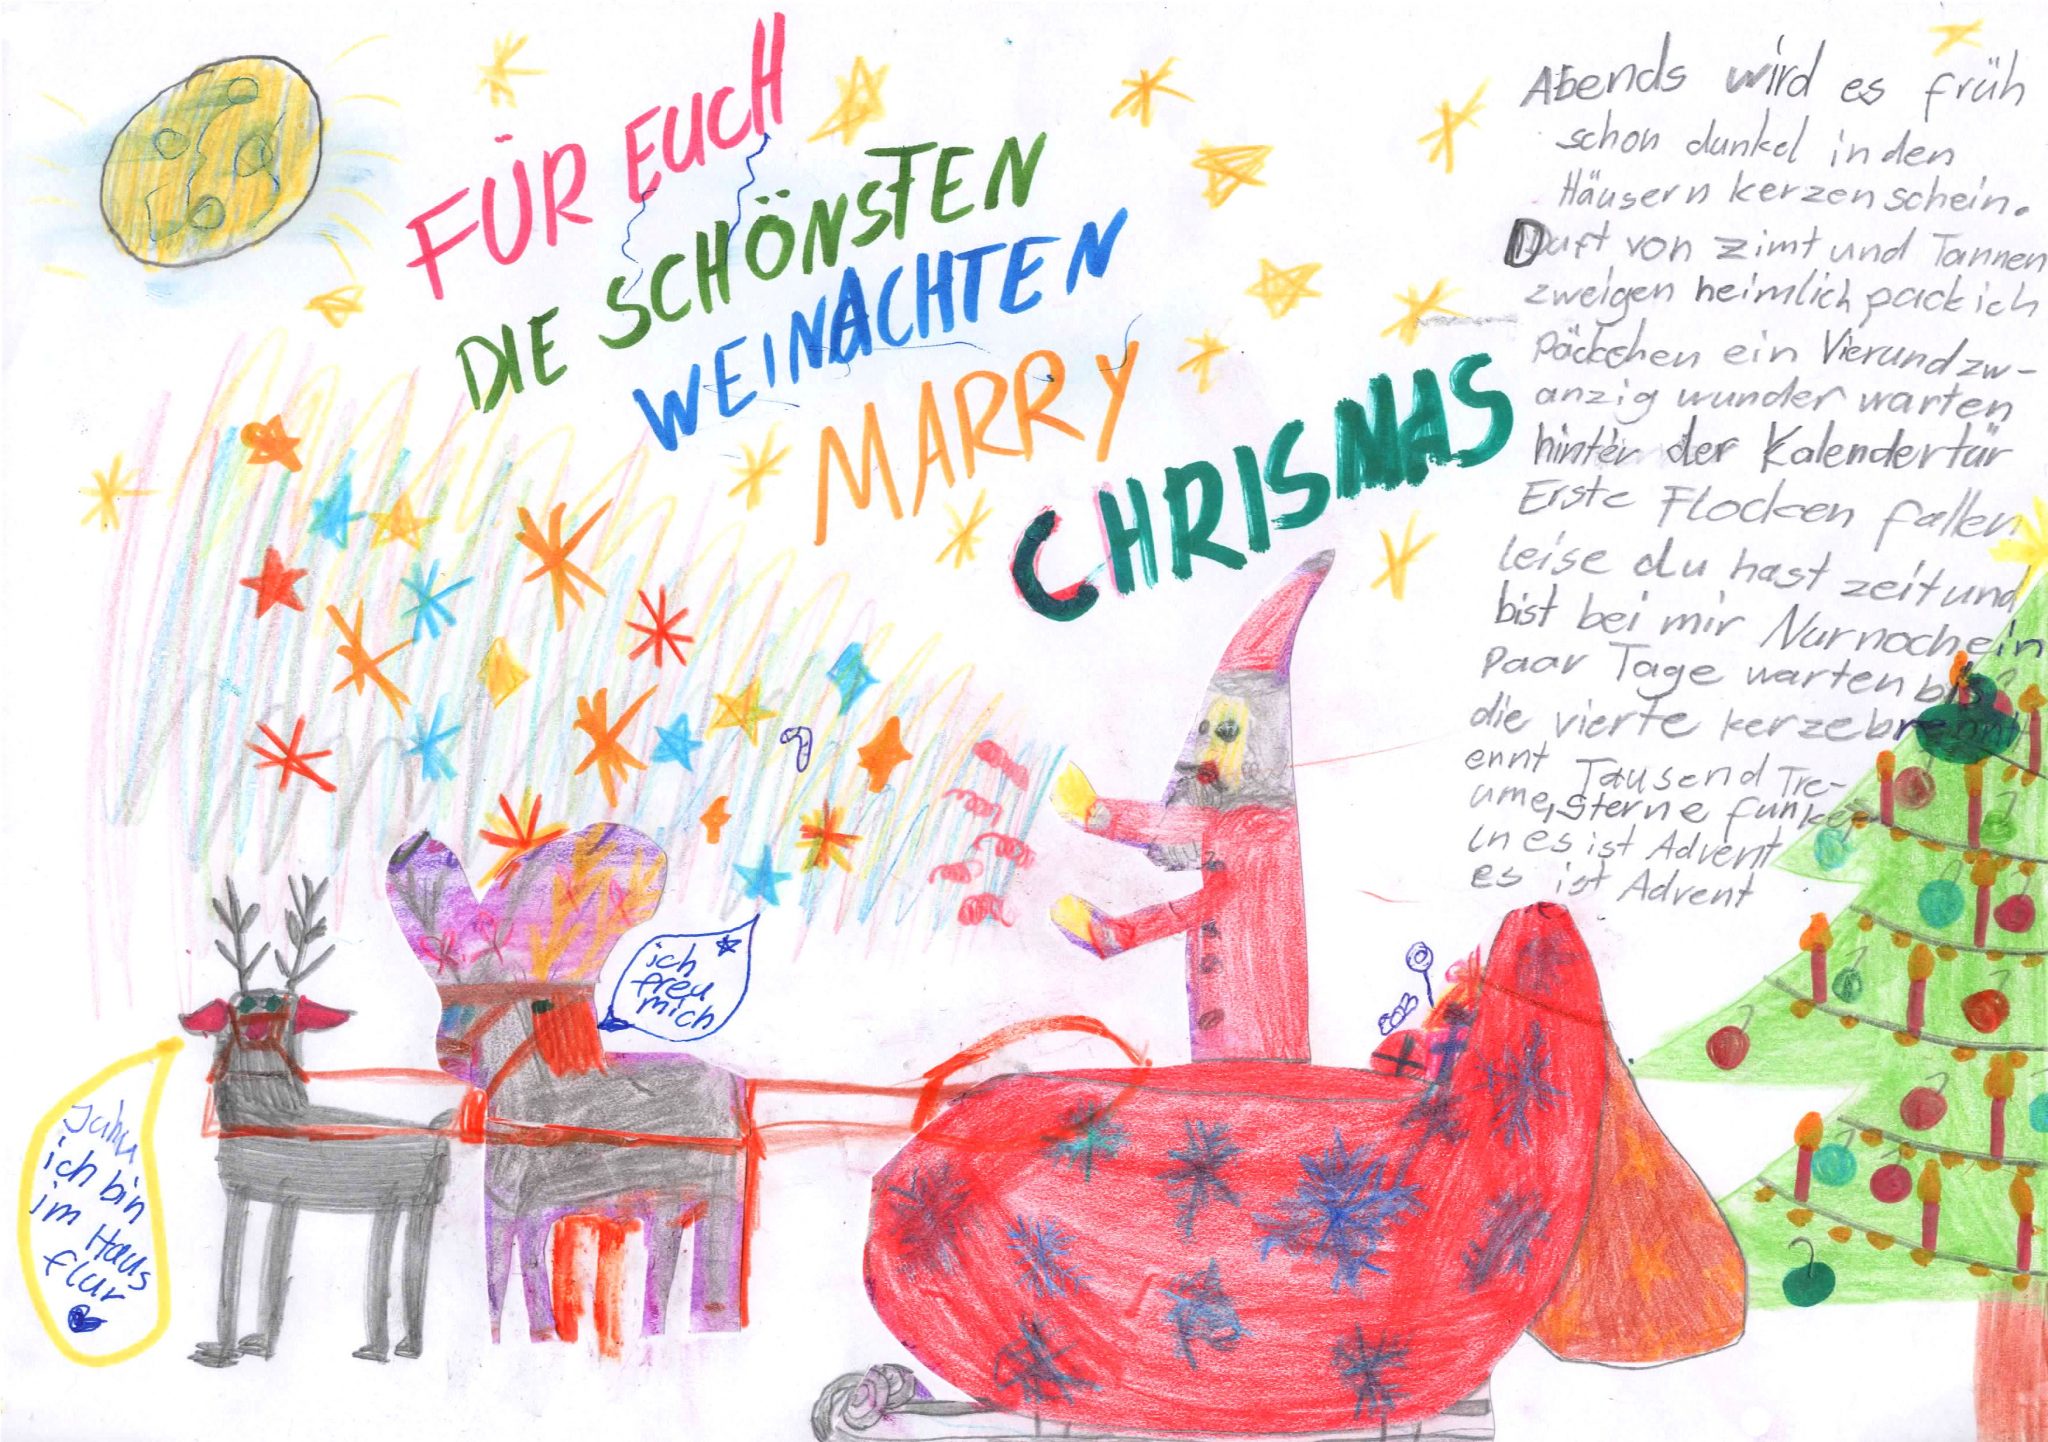 FÜR EUCH
DIE SCHÖNSTEN
WEINACHTEN
MARRY
CHRISMAS
Abends wird es früh
schon dunkel in den
Häusern kerzenschein.
Duft von Zimt und Tannen
zweigen heimlich pack ich
Päckchen ein Vierundzw-
anzig wunder warten
hinter der Kalendertür
Erste Flocken fallen
leise du hast zeit und
bist bei mir Nur noch ein
paar Tage warten bis
die vierte kerze brennt
ennt Tausend Tre-
ume, Sterne funkel
in es ist Advent
es ist Advent
ich
freu
mich
Juhu
ich bin
im Haus
flur